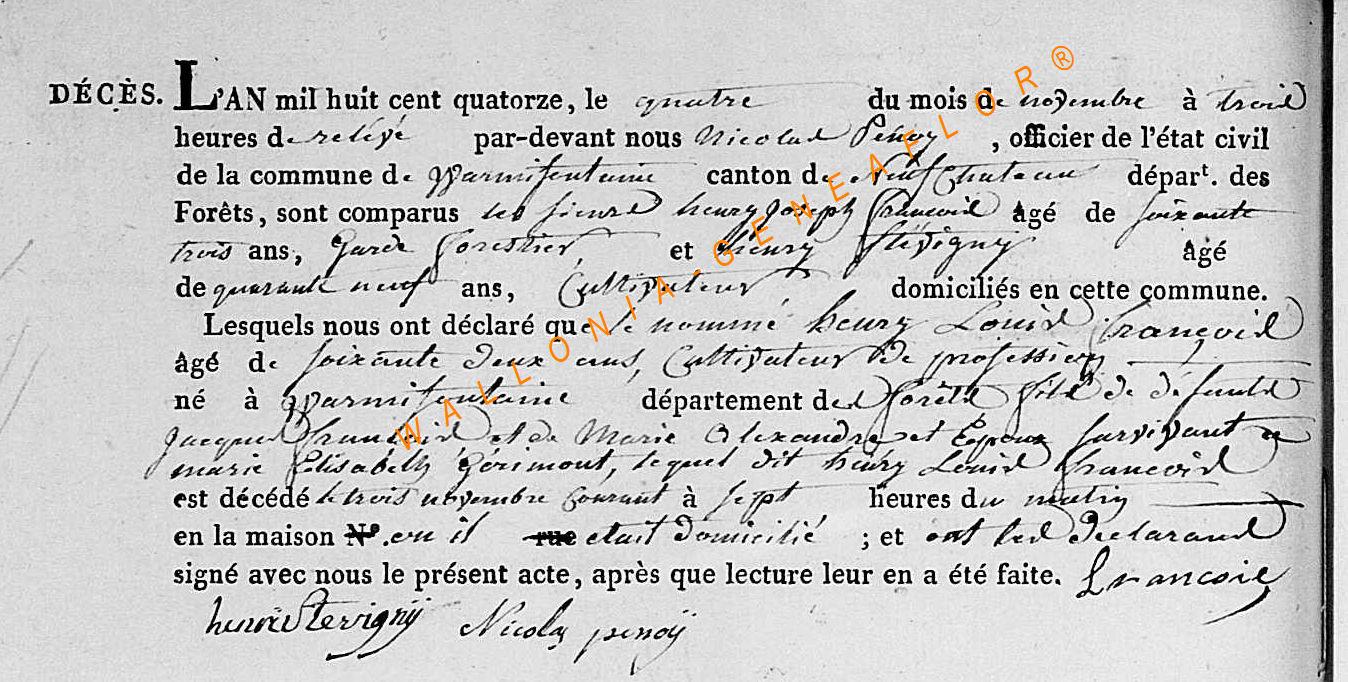 DÉCÈS. L'AN mil huit cent quatorze, le quatre du mois de novembre à trois
heures de relevé par-devant nous Nicolas Penoy, officier de l'état civil
de la commune de Warmifontaine canton de Neufchateau départ. des
Forêts, sont comparus les sieurs henry Joseph françois âgé de soixante
trois ans, Garde forestier et henry Stévigny âgé
de quarante neuf ans, Cultivateur domiciliés en cette commune.
Lesquels nous ont déclaré que le nommé henry Louis françois
âgé de soixante deux ans, Cultivateur de profession
né à Warmifontaine département des forêts fils de defunts
Jacques françois et de Marie Alexandre et Epoux survivant a
marie Elisabeth Gérimont, lequel dit henry Louis françois
est décédé le trois novembre courant à sept heures du matin
en la maison N°. ou il rue etait domicilié ; et ont les declarans
signé avec nous le présent acte, après que lecture leur en a été faite. francois
henri Stevignÿ Nicolas penoÿ
WALLONIA-GENEAFLOR®